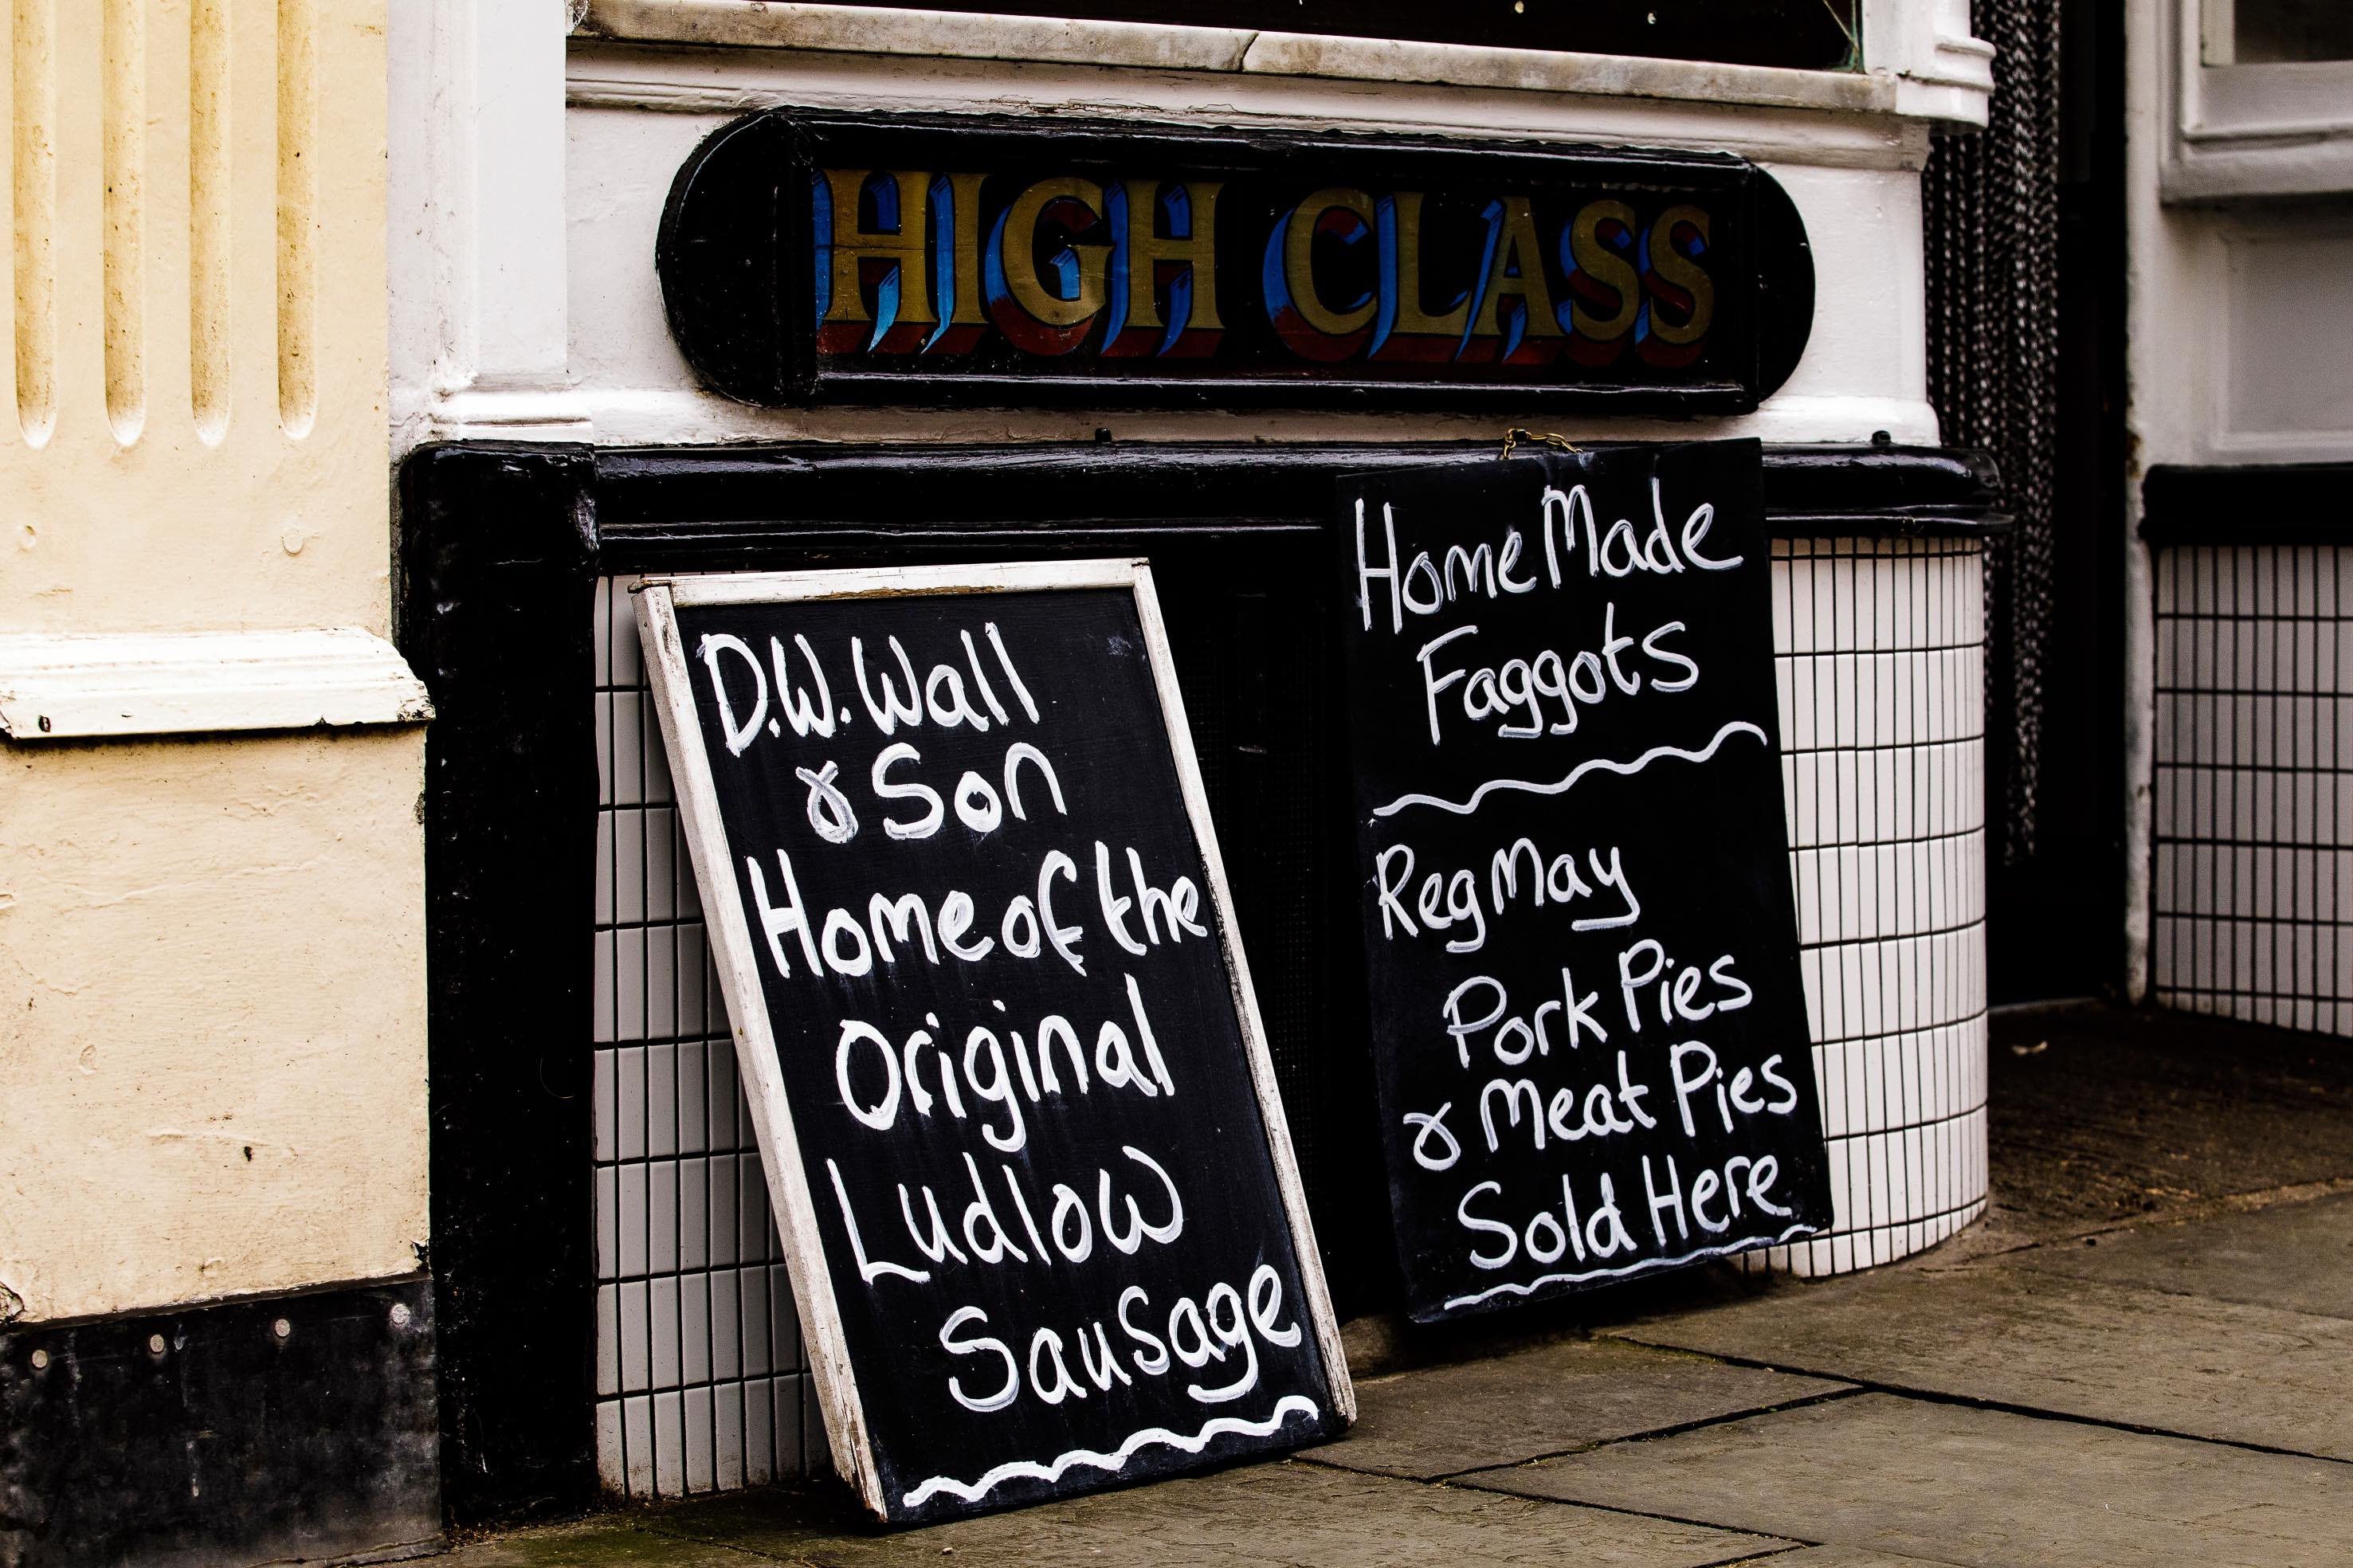 HIGH CLASS
D.W. Wall
& Son
Home of the
Original
Ludlow
Sausage
Home Made
Faggots
Reg May
Pork Pies
& Meat Pies
Sold Here